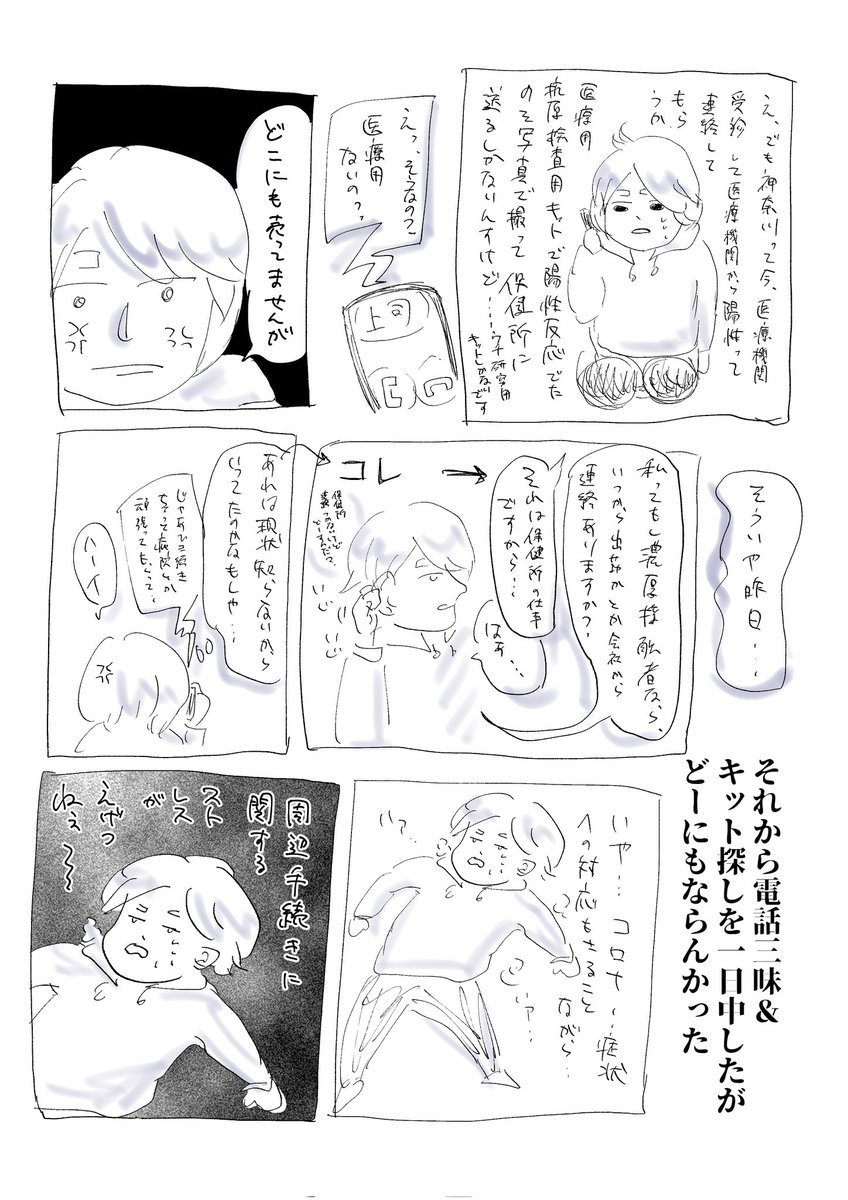 え、でも神奈川って今、医療機関
受診して医療機関から陽性って
連絡して
もらうか
医療用
抗原検査用キットで陽性反応でた
のを写真で撮って保健所に
送るしかないんすけど…
ウチ研究用
キットしかないです
えっ、そうなの?
医療用
ないの?
上司
どこにも売ってませんが
そういや昨日…
私ってもし濃厚接触者なら、
いつから出勤かとか会社から
連絡ありますか?
それは保健所の仕事
ですから…
はぁ…
コレ
あれは現状知らないから
いってたのかなもしや…
頑張ってもらって…
ハーイ
それから電話三昧&
キット探しを一日中したが
どーにもならんかった
いや…コロナ…症状
への対応もさること
ながら…
いっ
周辺手続きに
関する
スト
レス
が
えげつ
ねぇ〜〜